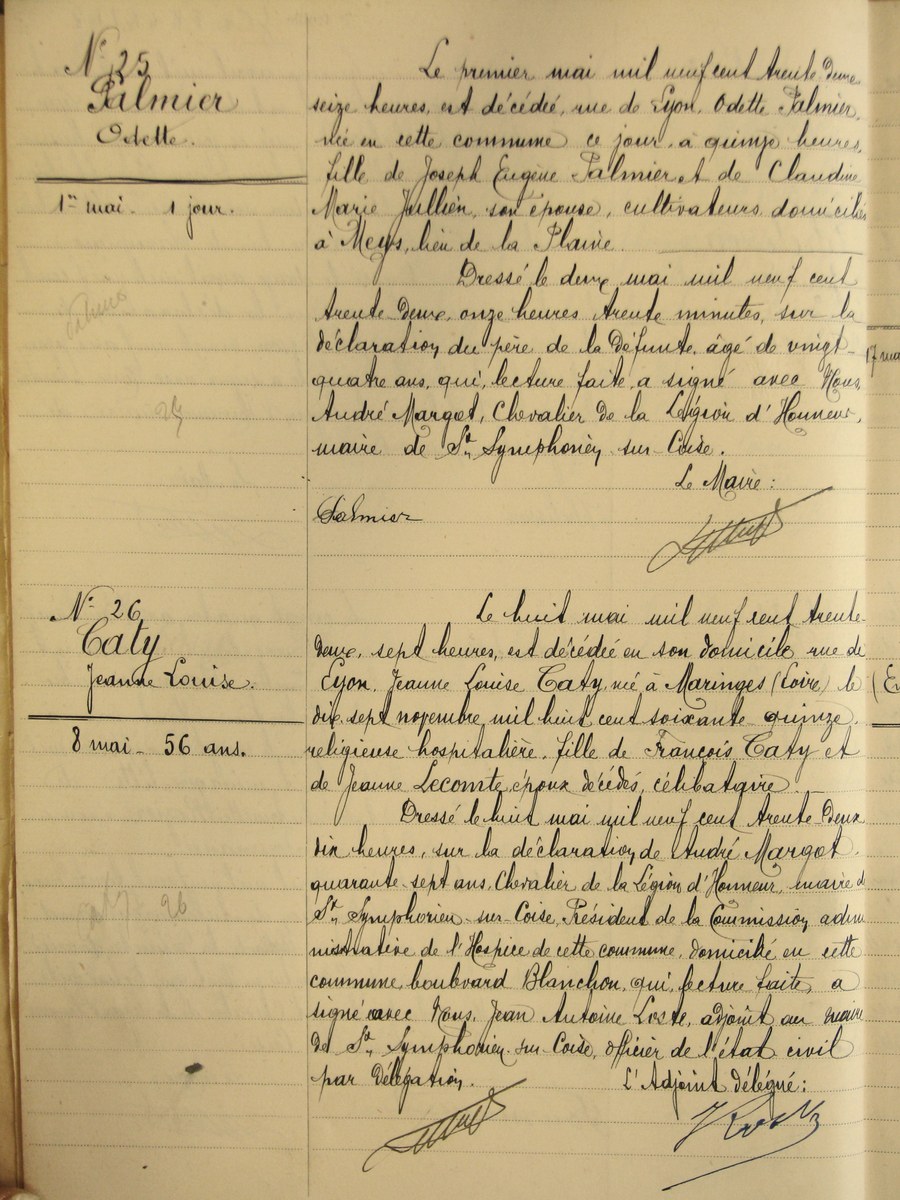 N° 25
Palmier
Odette.
1er mai. 1 jour.
Le premier mai mil neuf cent trente deux
seize heures, est décédée, rue de Lyon, Odette Palmier,
née en cette commune ce jour, à quinze heures,
fille de Joseph Eugène Palmier et de Claudine
Marie Jullien, son épouse, cultivateurs domiciliés
à Meys, lieu de la Plaine.
Dressé le deux mai mil neuf cent
trente deux, onze heures trente minutes, sur la
déclaration du père de la défunte, âgé de vingt-
quatre ans, qui, lecture faite, a signé avec Nous,
André Margot, Chevalier de la Légion d'Honneur,
maire de St Symphorien sur Coise.
Le Maire :
Palmier
N° 26
Caty
Jeanne Louise.
8 mai - 56 ans.
26
Le huit mai mil neuf cent trente-
deux, sept heures, est décédée en son domicile rue de
Lyon, Jeanne Louise Caty, née à Maringes (Loire) le
dix sept novembre mil huit cent soixante quinze,
religieuse hospitalière, fille de François Caty et
de Jeanne Lecomte, époux décédés, célibataire.
Dressé le huit mai mil neuf cent trente deux
dix heures, sur la déclaration de André Margot,
quarante-sept ans, Chevalier de la Légion d'Honneur, maire de
St Symphorien-sur-Coise, Président de la Commission admi
nistrative de l'Hospice de cette commune, domicilié en cette
commune, boulevard Blanchon, qui, lecture faite, a
signé avec Nous, Jean Antoine Loste, adjoint au maire
de St Symphorien-sur-Coise, officier de l'état civil
par délégation.
L'Adjoint délégué :
17 mai